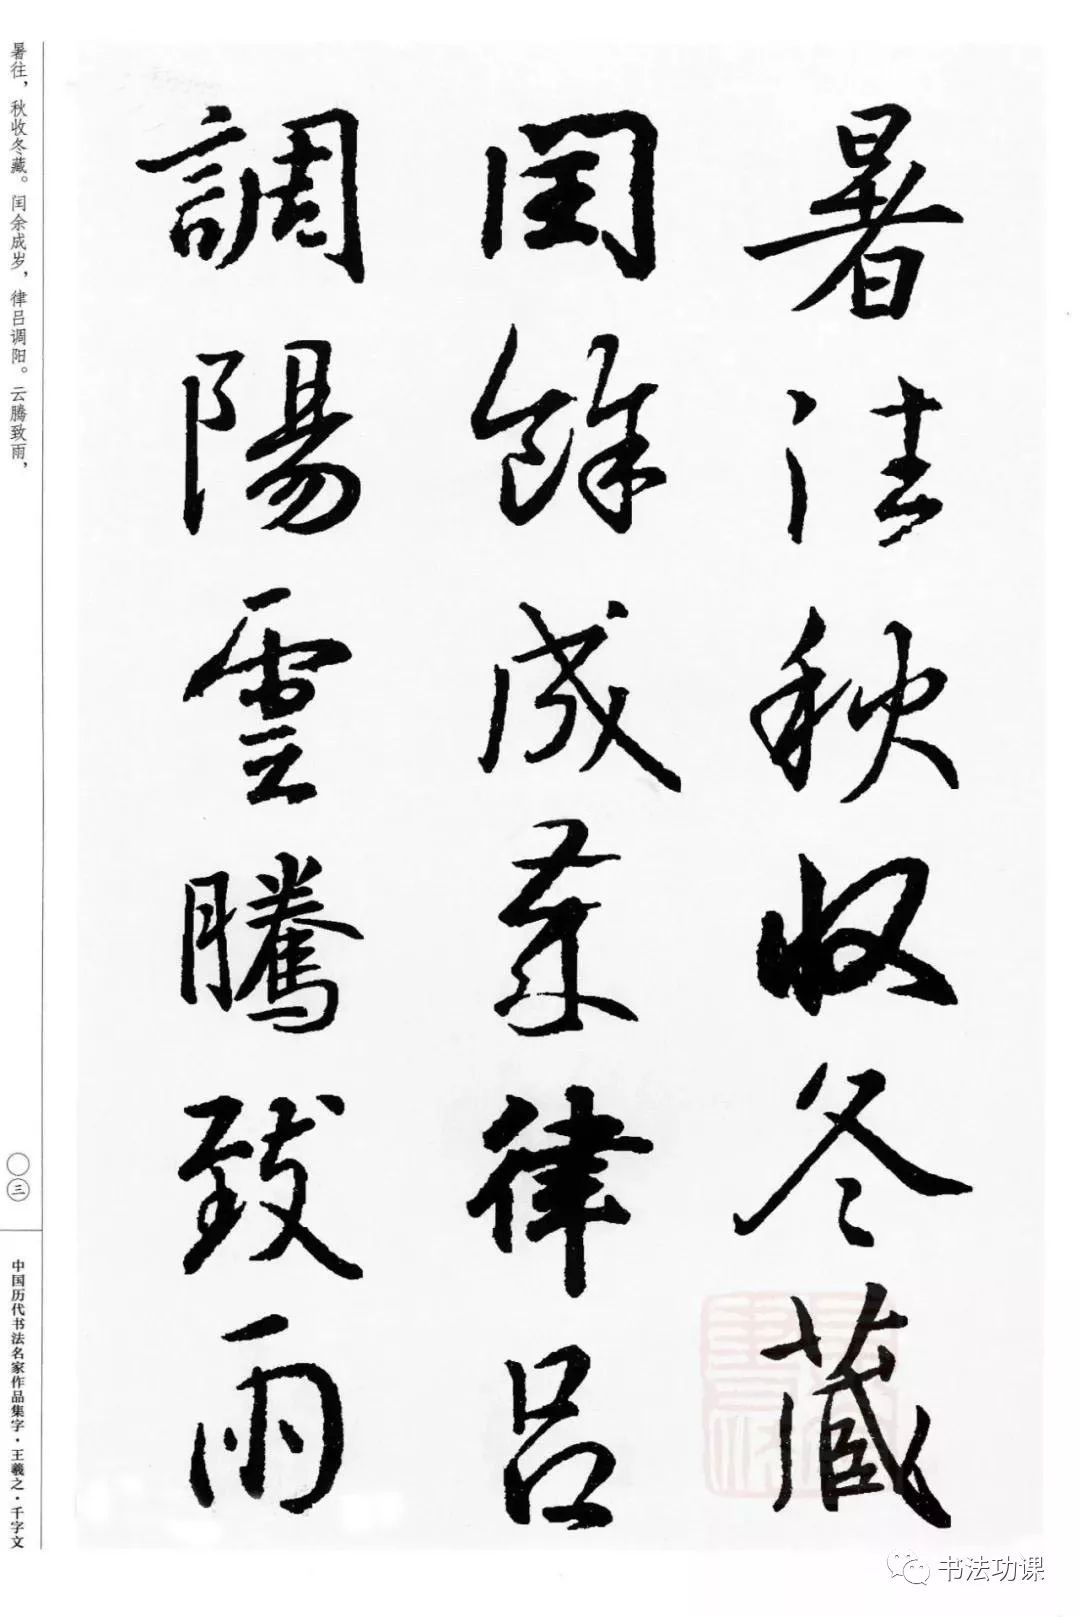 暑往秋收冬藏
閏餘成歲律呂
調陽雲騰致雨
暑往，秋收冬藏。闰余成岁，律吕调阳。云腾致雨，
〇三
中国历代书法名家作品集字·王羲之·千字文
书法功课